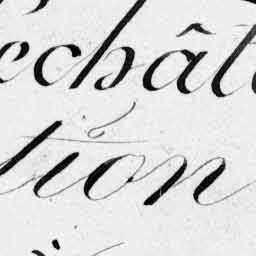 echât
tion